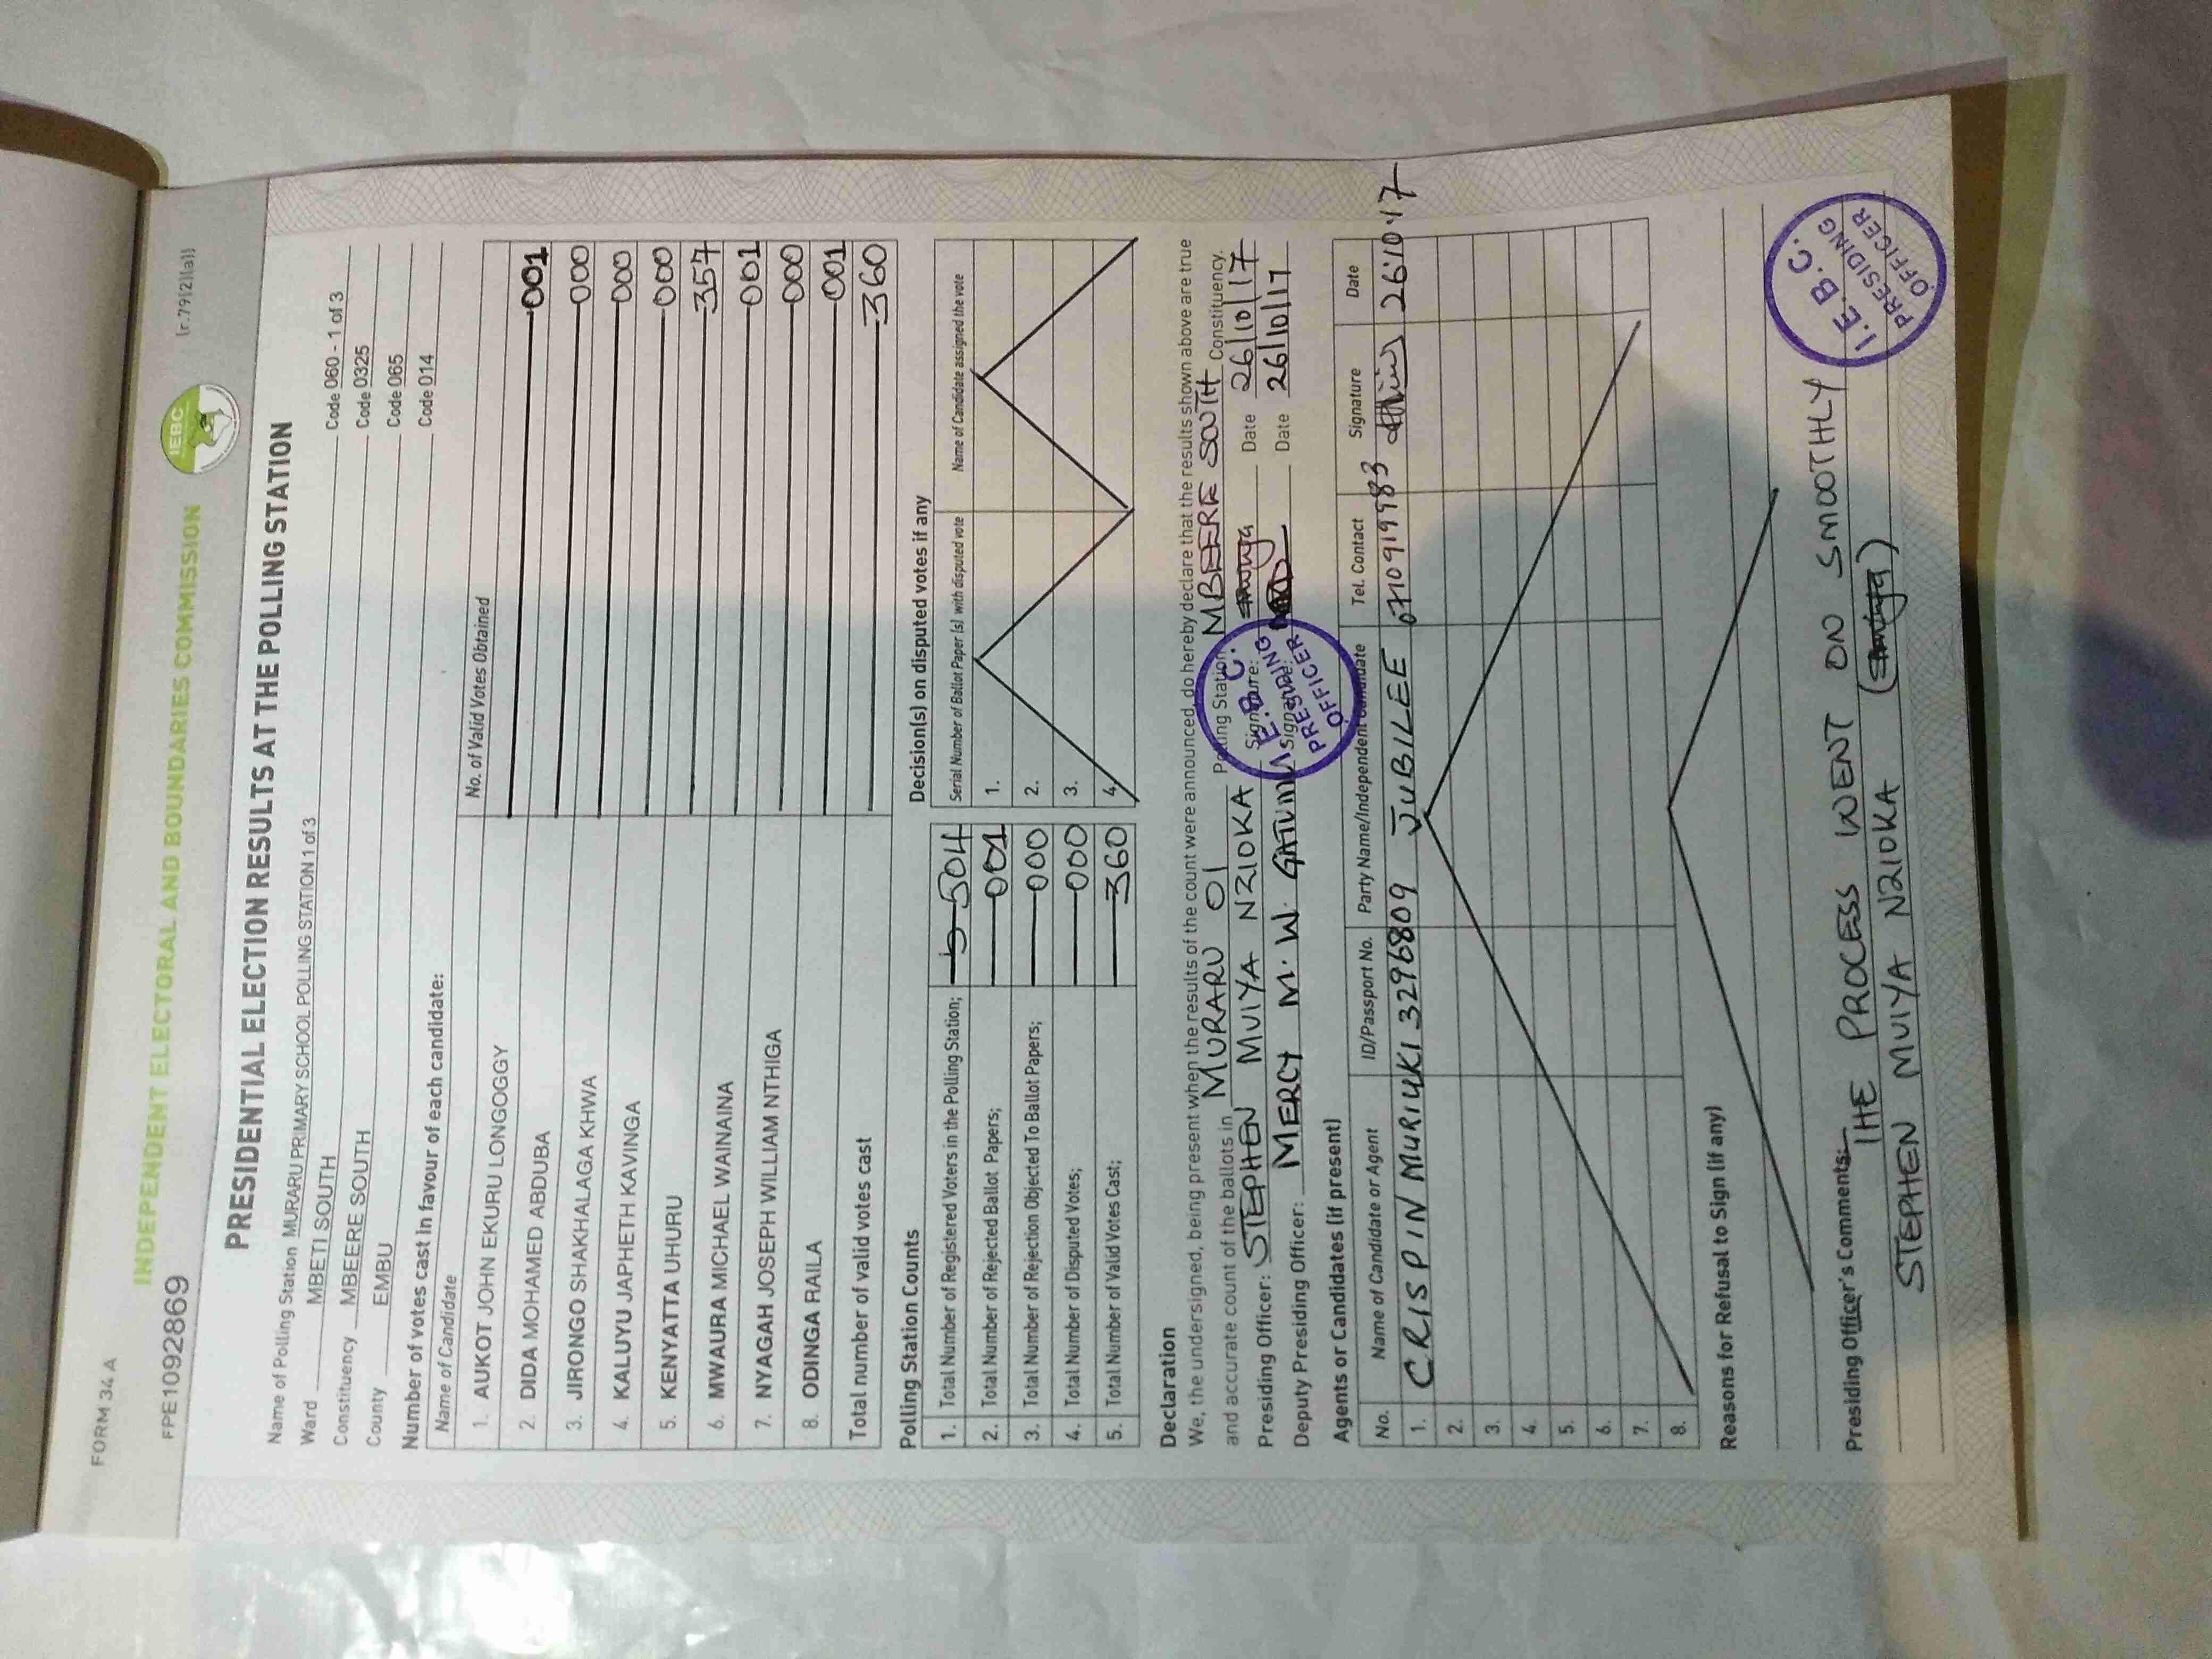 FORM 34 A
FPE1092869
INDEPENDENT ELECTORAL AND BOUNDARIES COMMISSION
IEBC
(r.79(2)(a))
PRESIDENTIAL ELECTION RESULTS AT THE POLLING STATION
Name of Polling Station MURARU PRIMARY SCHOOL POLLING STATION 1 of 3 Code 060 - 1 of 3
Ward MBETI SOUTH Code 0325
Constituency MBEERE SOUTH Code 065
County EMBU Code 014
Number of votes cast in favour of each candidate:
Name of Candidate No. of Valid Votes Obtained
1. AUKOT JOHN EKURU LONGOGGY 001
2. DIDA MOHAMED ABDUBA 000
3. JIRONGO SHAKHALAGA KHWA 000
4. KALUYU JAPHETH KAVINGA 000
5. KENYATTA UHURU 357
6. MWAURA MICHAEL WAINAINA 001
7. NYAGAH JOSEPH WILLIAM NTHIGA 000
8. ODINGA RAILA 001
Total number of valid votes cast 360
Polling Station Counts
1. Total Number of Registered Voters in the Polling Station; 504
2. Total Number of Rejected Ballot Papers; 001
3. Total Number of Rejection Objected To Ballot Papers; 000
4. Total Number of Disputed Votes; 000
5. Total Number of Valid Votes Cast; 360
Decision(s) on disputed votes if any
Serial Number of Ballot Paper (s) with disputed vote Name of Candidate assigned the vote
1.
2.
3.
4.
Declaration
We, the undersigned, being present when the results of the count were announced, do hereby declare that the results shown above are true
and accurate count of the ballots in MURARU 01 Polling Station MBEERE SOUTH Constituency.
Presiding Officer: STEPHEN MUIYA NZIOKA Signature: Date 26/10/17
Deputy Presiding Officer: MERCY M. W. Signature: Date 26/10/17
I.E.B.C.
PRESIDING
OFFICER
Agents or Candidates (if present)
No. Name of Candidate or Agent ID/Passport No. Party Name/Independent Candidate Tel. Contact Signature Date
1. CRISPIN MURIUKI 3296809 JUBILEE 0710919983 26.10.17
2.
3.
4.
5.
6.
7.
8.
Reasons for Refusal to Sign (if any)
Presiding Officer's Comments:
THE PROCESS WENT ON SMOOTHLY
STEPHEN MUIYA NZIOKA
I.E.B.C.
PRESIDING
OFFICER